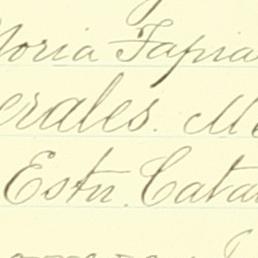 Noria Tapia
erales. M
Estn. Catal